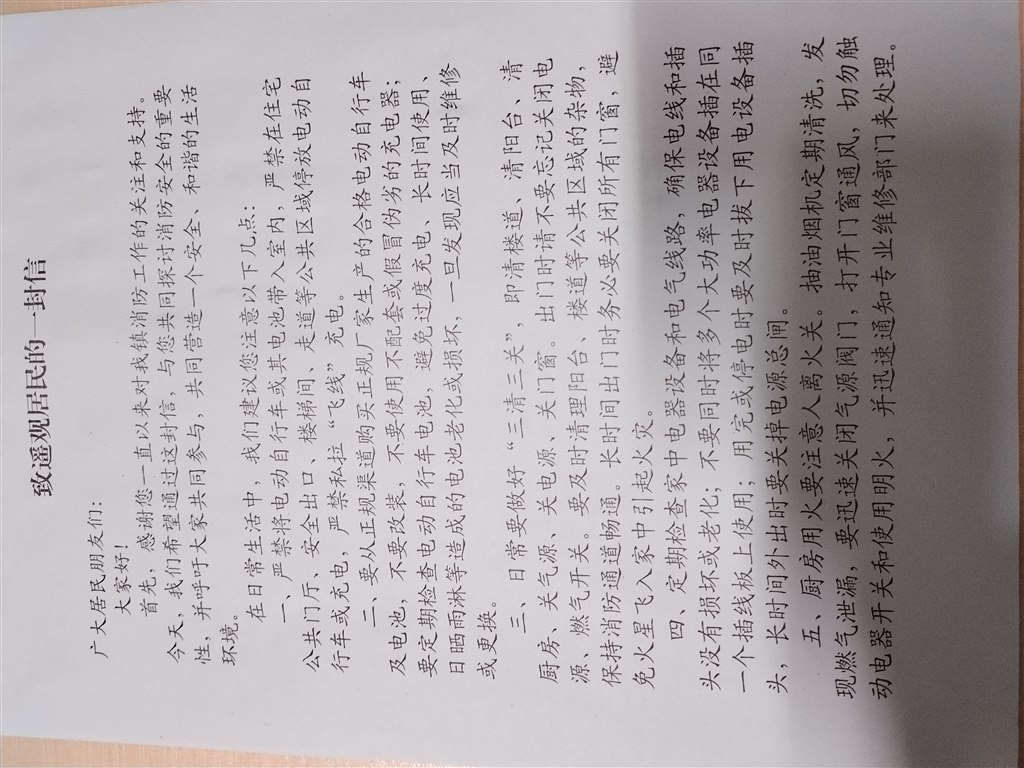 致遥观居民的一封信
广大居民朋友们：
大家好！
首先，感谢您一直以来对我镇消防工作的关注和支持。
今天，我们希望通过这封信，与您共同探讨消防安全的重要
性，并呼吁大家共同参与，共同营造一个安全、和谐的生活
环境。
在日常生活中，我们建议您注意以下几点：
一、严禁将电动自行车或其电池带入室内，严禁在住宅
公共门厅、安全出口、楼梯间、走道等公共区域停放电动自
行车或充电，严禁私拉“飞线”充电。
二、要从正规渠道购买正规厂家生产的合格电动自行车
及电池，不要改装，不要使用不配套或假冒伪劣的充电器；
要定期检查电动自行车电池，避免过度充电、长时间使用、
日晒雨淋等造成的电池老化或损坏，一旦发现应当及时维修
或更换。
三、日常要做好“三清三关”，即清楼道、清阳台、清
厨房、关气源、关电源、关门窗。出门时请不要忘记关闭电
源、燃气开关。要及时清理阳台、楼道等公共区域的杂物，
保持消防通道畅通。长时间出门时务必要关闭所有门窗，避
免火星飞入家中引起火灾。
四、定期检查家中电器设备和电气线路，确保电线和插
头没有损坏或老化；不要同时将多个大功率电器设备插在同
一个插线板上使用；用完或停电时要及时拔下用电设备插
头，长时间外出时要关掉电源总闸。
五、厨房用火要注意人离火关。抽油烟机定期清洗，发
现燃气泄漏，要迅速关闭气源阀门，打开门窗通风，切勿触
动电器开关和使用明火，并迅速通知专业维修部门来处理。